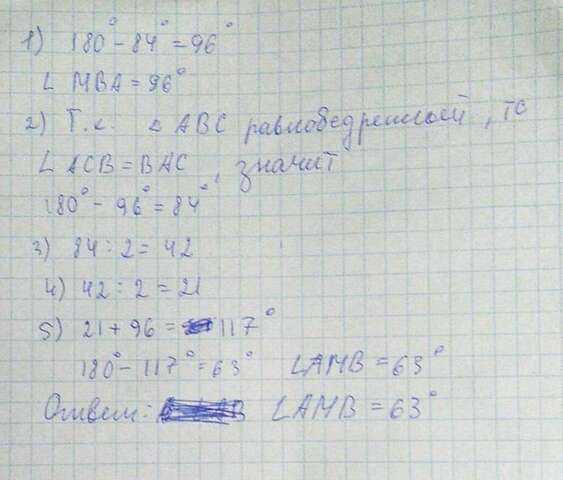 1) 180° - 84° = 96°
∠ MBA = 96°
2) Т.к. △ ABC равнобедренный, то
∠ ACB = BAC, значит
180° - 96° = 84°
3) 84 : 2 = 42
4) 42 : 2 = 21
5) 21 + 96 = 117°
180° - 117° = 63° ∠AMB = 63°
Ответ: ∠AMB = 63°